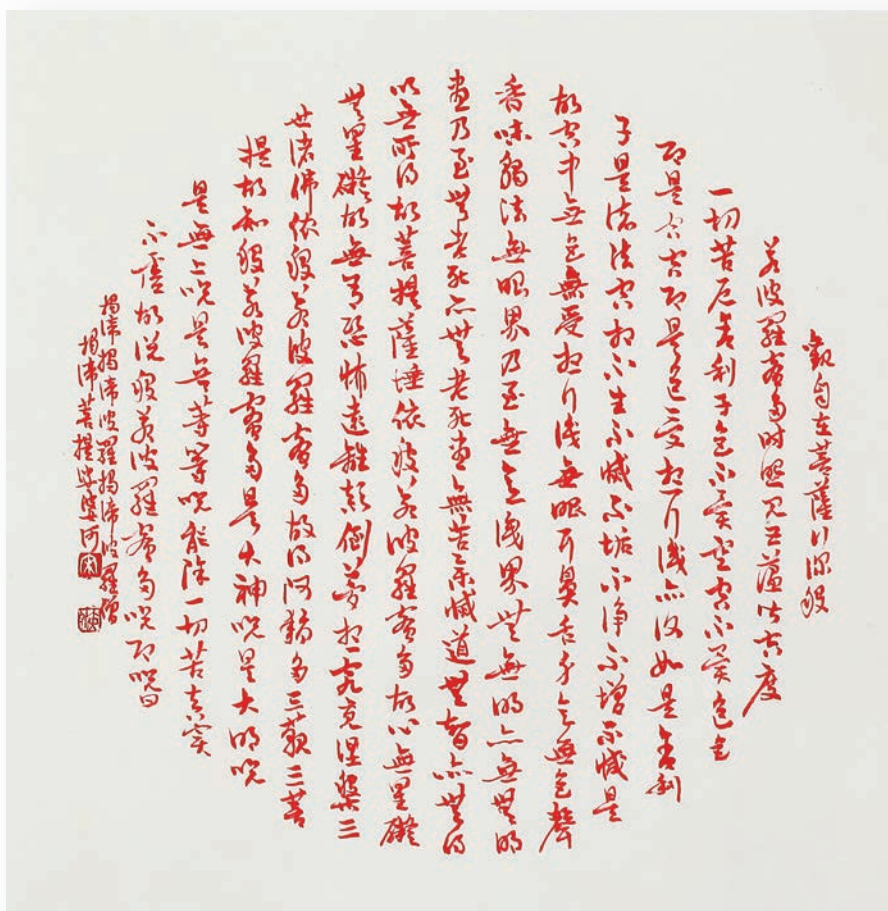 觀自在菩薩行深般
若波羅蜜多時照見五蘊皆空度
一切苦厄舍利子色不異空空不異色色
即是空空即是色受想行識亦復如是舍利
子是諸法空相不生不滅不垢不淨不增不減是
故空中無色無受想行識無眼耳鼻舌身意無色聲
香味觸法無眼界乃至無意識界無無明亦無無明
盡乃至無老死亦無老死盡無苦集滅道無智亦無得
以無所得故菩提薩埵依般若波羅蜜多故心無罣礙
無罣礙故無有恐怖遠離顛倒夢想究竟涅槃三
世諸佛依般若波羅蜜多故得阿耨多三藐三菩
提故知般若波羅蜜多是大神呪是大明呪
是無上呪是無等等呪能除一切苦真實
不虛故說般若波羅蜜多呪即呪曰
揭諦揭諦波羅揭諦波羅僧
揭諦菩提娑婆訶